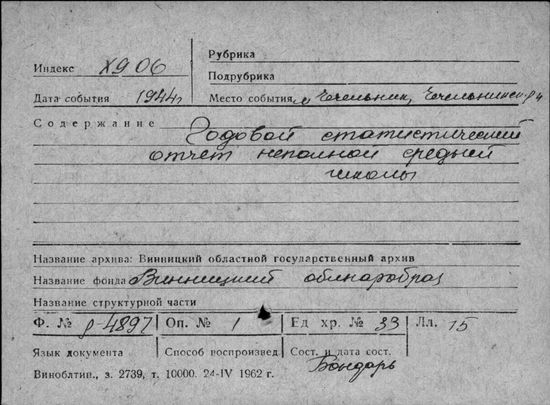 Рубрика
Индекс Х906
Подрубрика
Дата события 1944г
Место события м Чечельник, Чечельницк. р-н
Содержание Годовой статистический
отчет неполной средней
школы
Название архива: Винницкий областной государственный архив
Название фонда Винницкий облнаробраз
Название структурной части
Ф. № р 4897 Оп. № 1 Ед хр. № 33 Лл. 15
Язык документа Способ воспроизвед. Сост. и дата сост.
Бондарь
Виноблтип., з. 2739, т. 10000. 24-IV 1962 г.